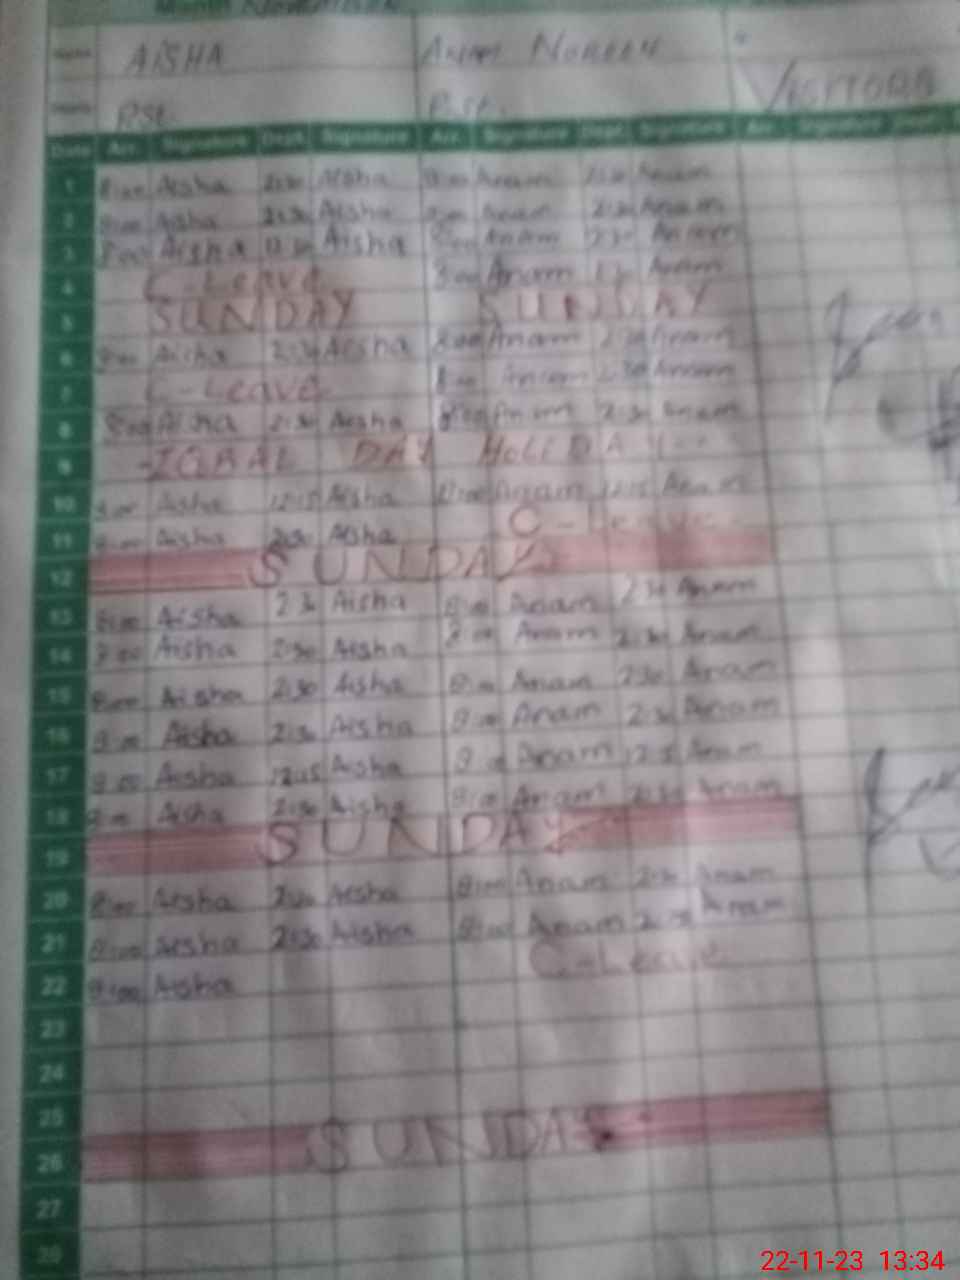 Month November
Name AISHA Anam Noreen
VISITORS
Pst. Pst.
Date Arr. Signature Dept. Signature Arr. Signature Dept. Signature Arr. Signature Dept.
1 8:00 Aisha 2:30 Aisha 8:00 Anam 2:30 Anam
2 8:00 Aisha 2:30 Aisha 8:00 Anam 2:30 Anam
3 8:00 Aisha 12:30 Aisha 8:00 Anam 12:30 Anam
4 C-Leave 8:00 Anam Anam
5 SUNDAY SUNDAY
6 8:00 Aisha 2:30 Aisha 8:00 Anam 2:30 Anam
7 C-Leave 8:00 Anam 2:30 Anam
8 8:00 Aisha 2:30 Aisha 8:00 Anam 2:30 Anam
9 -IQBAL DAY HOLIDAY--
10 8:00 Aisha 12:15 Aisha 8:00 Anam 12:15 Anam
11 8:00 Aisha 2:30 Aisha C-Leave
12 SUNDAY
13 8:00 Aisha 2:30 Aisha 8:00 Anam 2:30 Anam
14 8:00 Aisha 2:30 Aisha 8:00 Anam 2:30 Anam
15 8:00 Aisha 2:30 Aisha 8:00 Anam 2:30 Anam
16 8:00 Aisha 2:30 Aisha 8:00 Anam 2:30 Anam
17 8:00 Aisha 12:15 Aisha 8:00 Anam 12:15 Anam
18 8:00 Aisha 2:30 Aisha 8:00 Anam 2:30 Anam
19 SUNDAY
20 8:00 Aisha 2:30 Aisha 8:00 Anam 2:30 Anam
21 8:00 Aisha 2:30 Aisha 8:00 Anam Anam
22 8:00 Aisha C-Leave
23
24
25
26 SUNDAY
27
22-11-23 13:34